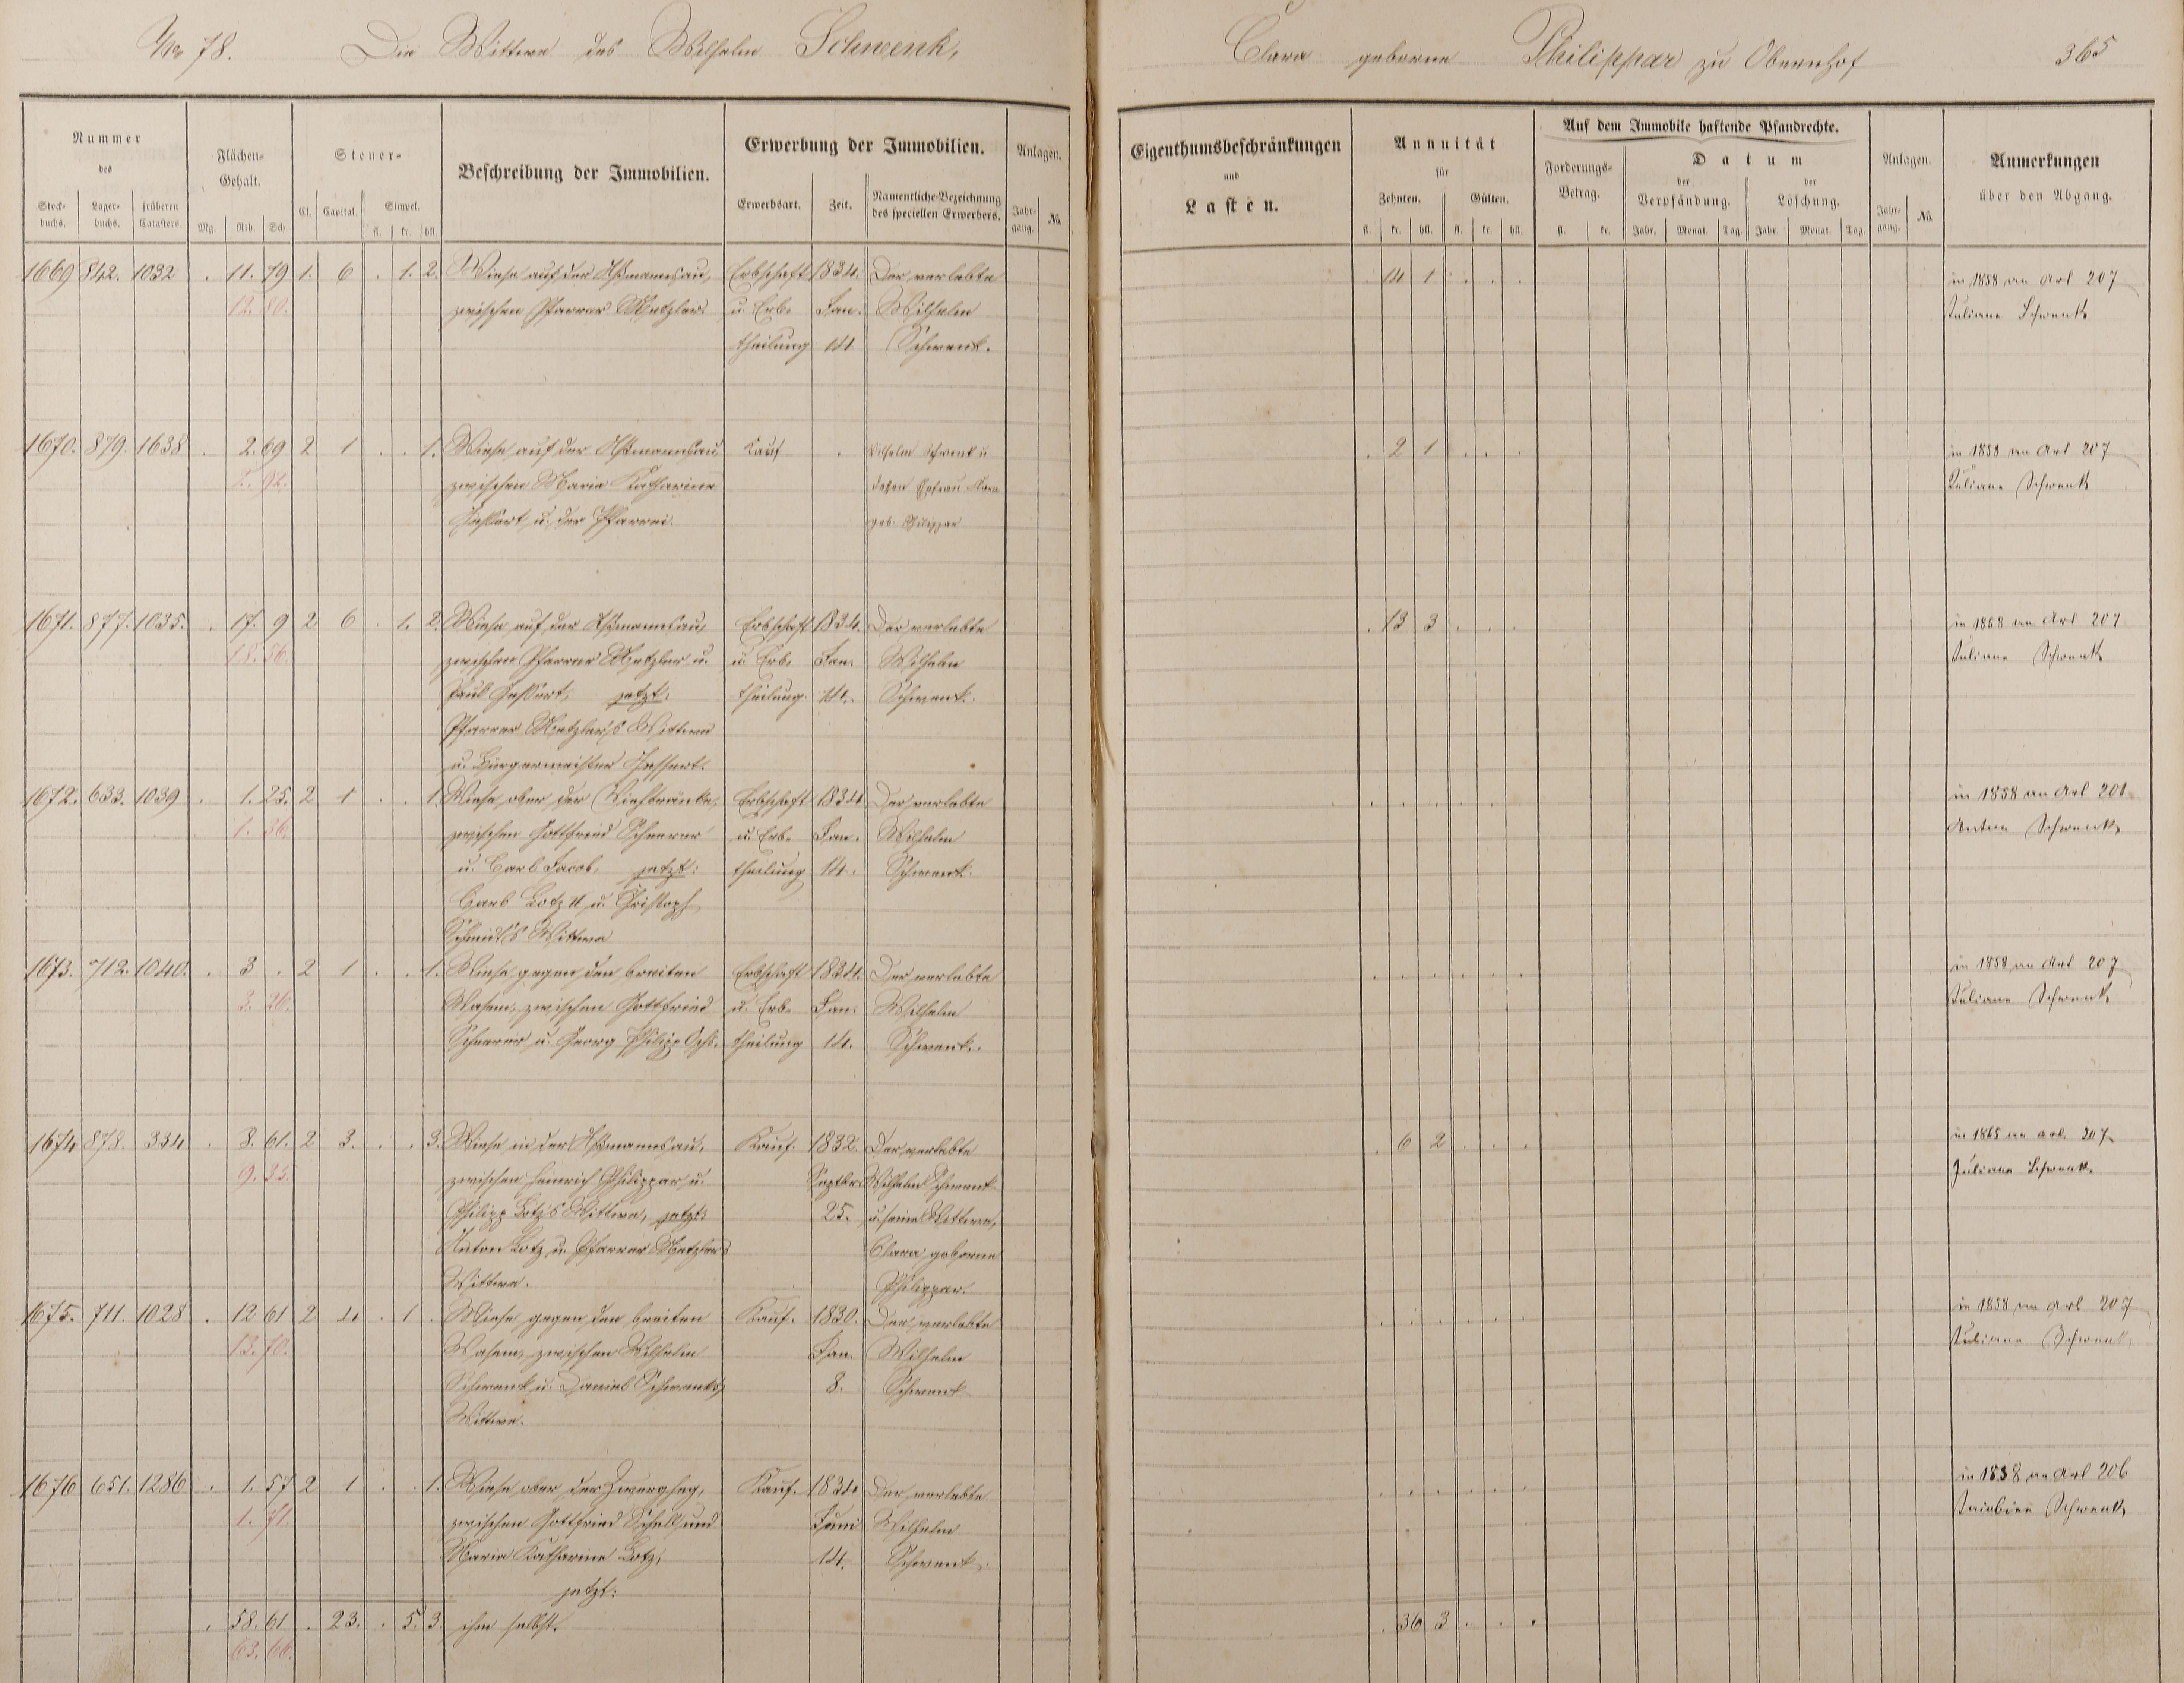 No 78. Die Wittwe des Wilhelm Schwenk,
Clara geborne Philippar zu Obernhof 365
Nummer
des
Stock-buchs. Lager-buchs. früheren Catasters
Flächen-Gehalt.
Mg. Rth. Sch.
Steuer-
Cl. Capital. Simpel.
fl. kr. hll.
Beschreibung der Immobilien.
Erwerbung der Immobilien.
Erwerbsart. Zeit. Namentliche Bezeichnung des speciellen Erwerbers.
Anlagen.
Jahr-gang. No.
Eigenthumsbeschränkungen
und
Lasten.
Annuität
für
Zehnten. Gülten.
fl. kr. hll. fl. kr. hll.
Auf dem Immobile haftende Pfandrechte.
Forderungs-Betrag.
fl. kr.
Datum
der Verpfändung. der Löschung.
Jahr. Monat. Tag. Jahr. Monat. Tag.
Anlagen.
Jahr-gang. No.
Anmerkungen
über den Abgang.
1669 842. 1032 . 11. 79 1. 6 . 1. 2. Wiese auf der Aßmannsau, Erbschaft 1834. Der verlebte . 14 1 . . . in 1858 an Art 207
12. 80. zwischen Pfarrer Metzler u Erb- Jan. Wilhelm Juliane Schwenk
theilung 14 Schwenk.
1670. 879. 1638 . 2. 69 2 1 . . 1. Wiese auf der Aßmannsau Kauf . Wilhelm Schwenk u . 2 1 . . . in 1858 an Art 207
2. 92. zwischen Maria Katharina dessen Ehefrau Clara Juliane Schwenk
u. der Pfarrei. geb. Philippar
1671. 877. 1035. . 17. 9 2 6 . 1. 2. Wiese auf der Aßmannsau, Erbschaft 1834. Der verlebte . 13 3 . . . in 1858 an Art 207
18. 56. zwischen Pfarrer Metzler u. u Erb- Jan. Wilhelm Juliane Schwenk
Paul jetzt: theilung. 14. Schwenk.
Pfarrer Metzler's Wittwe
u. Bürgermeister
1672. 633. 1039 . 1. 25. 2 1 . . 1 Wiese ober der Viehtränke, Erbschaft 1834 Der verlebte . . . . . . in 1858 an Art 201
1. 36. zwischen Gottfried Scheurer u Erb- Jan. Wilhelm Anton Schwenk
u. Carl Jacob, jetzt: theilung 14. Schwenk.
Carl Lotz II u. Christoph
Schmidt's Wittwe
1673. 712. 1040. . 3 . 2 1 . . 1. Wiese gegen den breiten Erbschaft 1834. Der verlebte . . . . . . in 1858 an Art 207
3. 26. Wasem, zwischen Gottfried u. Erb- Jan. Wilhelm Juliane Schwenk
Scheurer u. Georg Philipp theilung 14. Schwenk.
1674 878. 334 . 8. 61. 2 3. . . 3. Wiese in der Aßmannsau, Kauf. 1832. Der verlebte . 6 2 . . . in 1865 an Art. 207
9. 35. zwischen Heinrich Philippar u. Septbr Wilhelm Schwenk Juliane Schwenk.
Philipp Lotz's Wittwe, jetzt: 25. u. seine Wittwe,
Anton Lotz u. Pfarrer Metzlers Clara geborne
Wittwe. Philippar.
1675. 711. 1028 . 12 61 2 4. . 1 . Wiese gegen den breiten Kauf. 1830. Der verlebte . . . . . . in 1858 an Art 207
13. 70. Wasem, zwischen Wilhelm Jan. Wilhelm Juliane Schwenk
Schwenk u. Daniel Schwenk's 8. Schwenk
Wittwe.
1676 651. 1286 . 1. 57 2 1 . . 1. Wiese ober der Kauf. 1834 Der verlebte . . . . . . in 1858 an Art 206
1. 71. zwischen Gottfried Schell und Juni Wilhelm Schwenk
Maria Katharina Lotz, 14. Schwenk.
jetzt:
. 58. 61 . 23. . 5. 3. ihm selbst. . 36 3 . . .
63. 66.